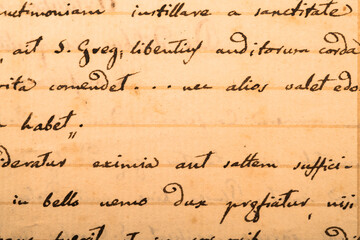 nctimoniam instillare a sanctitate
, ait S. Greg; libentius auditorum corda
vita comendet . . . nec alios valet edo
n habet„
ideratur eximia aut saltem suffici-
in bello nemo dux nisi